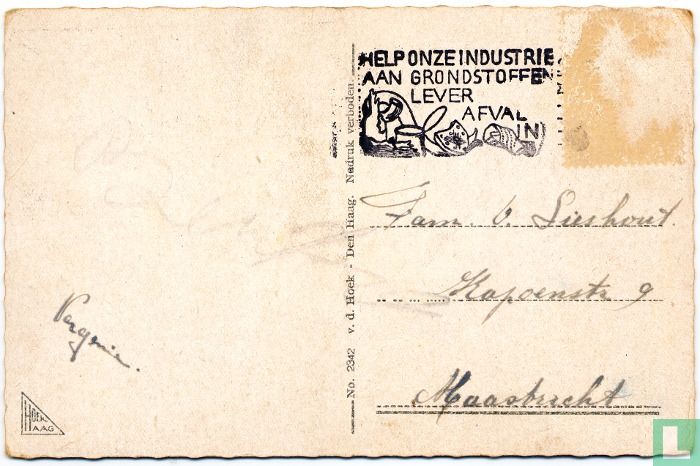 HELP ONZE INDUSTRIE
AAN GRONDSTOFFEN
LEVER
AFVAL
IN
Fam. v. Lieshout.
Kapoenstr 9
Maastricht
No. 2342 v. d. Hoek - Den Haag. Nadruk verboden.
HOEK
HAAG
catawiki